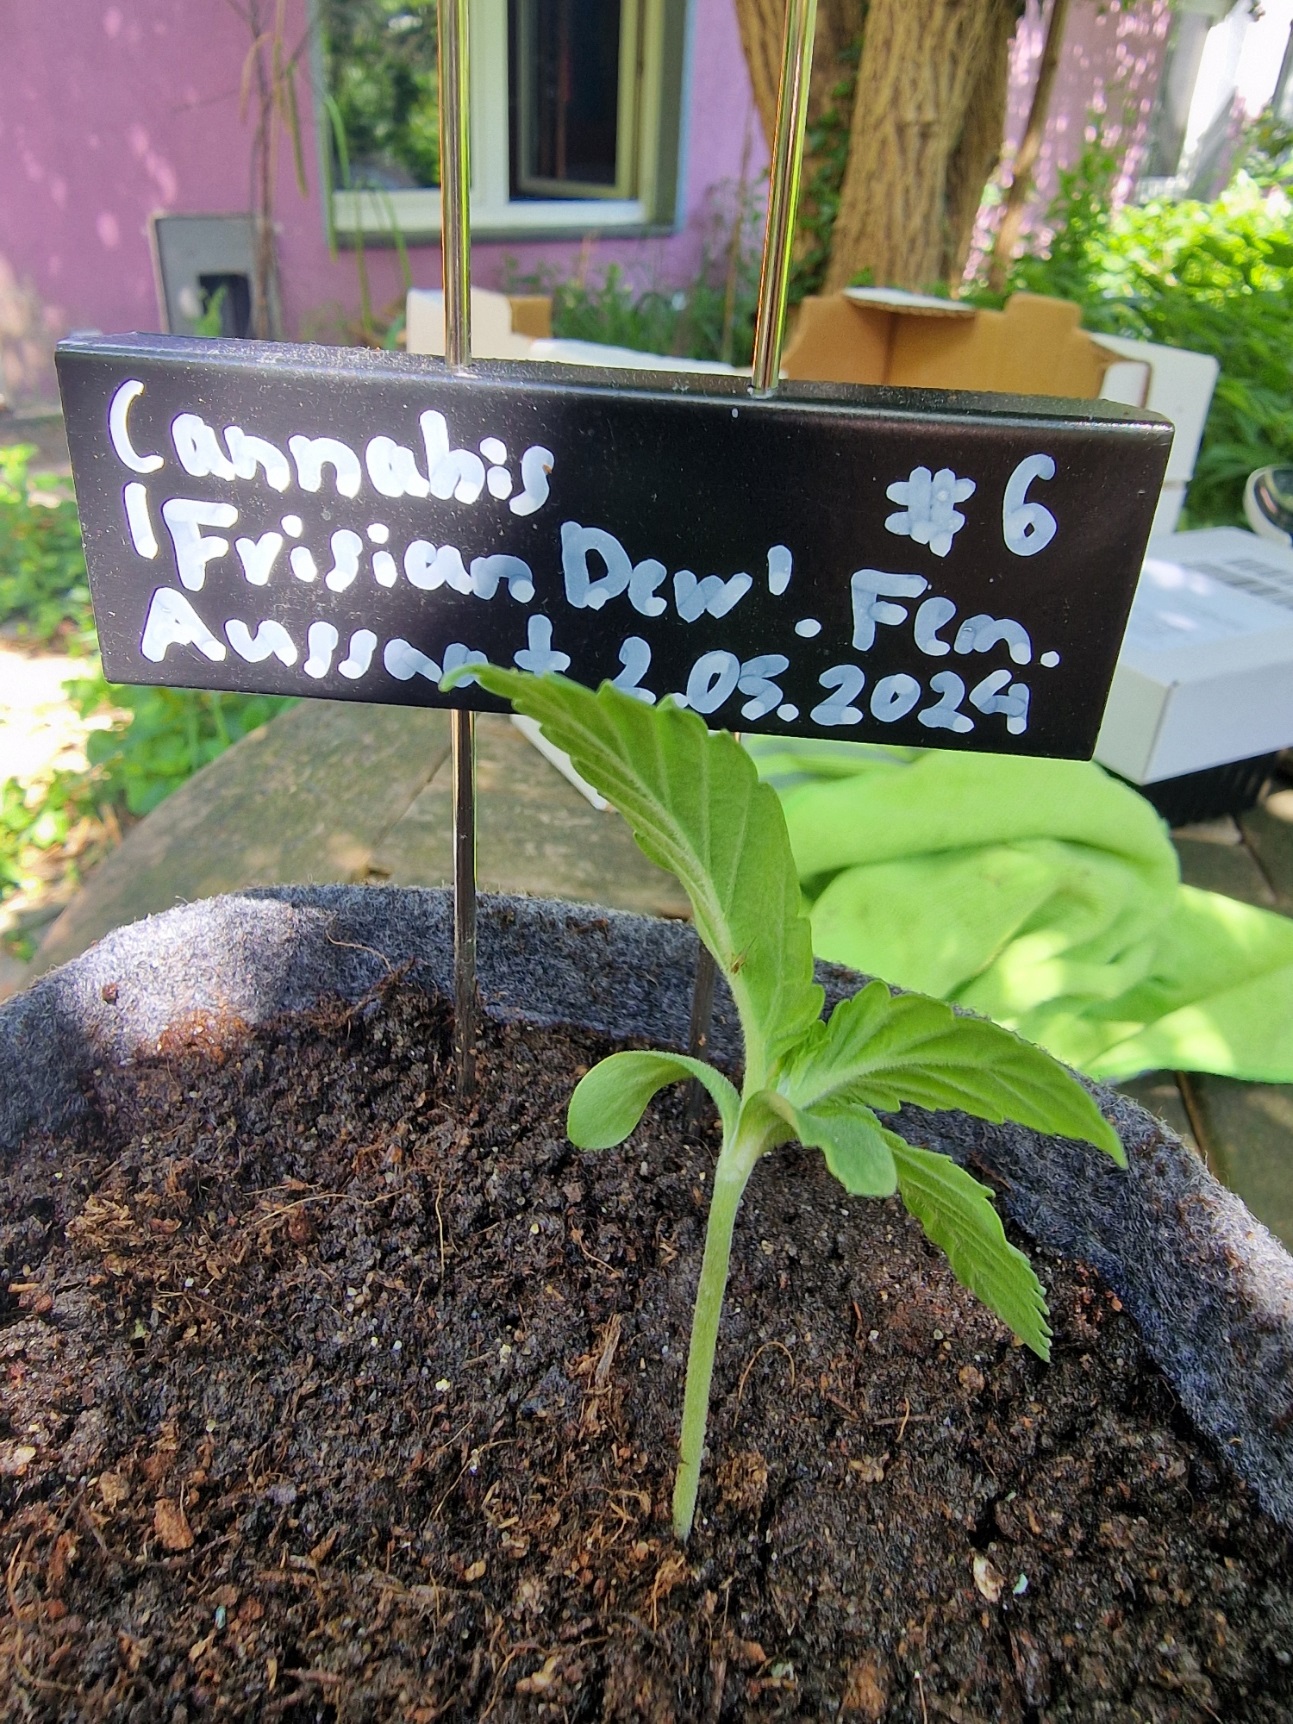 Cannabis #6
'Frisian Dew'. Fem.
Aussaat 2.05.2024